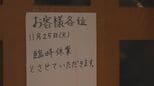 お客様各位
11月25日(火)
臨時休業
とさせていただきます